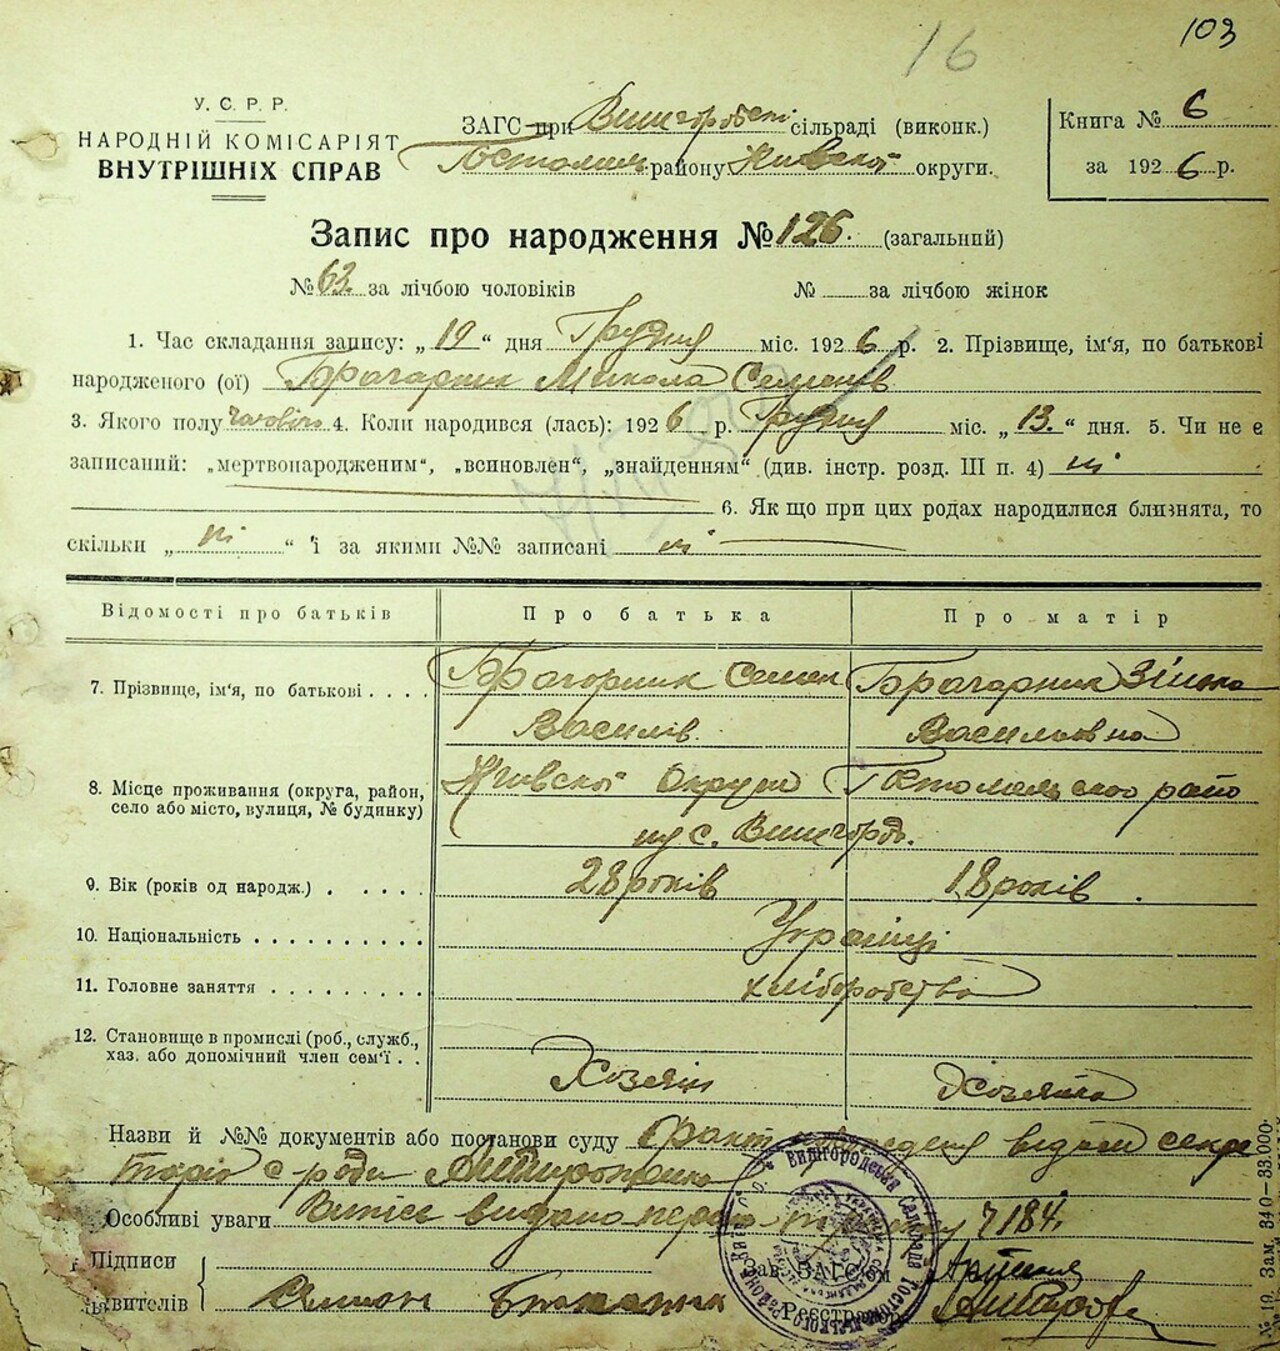 103
16
У. С. Р. Р.
НАРОДНІЙ КОМІСАРІЯТ
ВНУТРІШНІХ СПРАВ
ЗАГС при Вишгородські сільраді (виконк.)
Гостомель району Київской округи.
Книга № 6
за 1926 р.
Запис про народження № 126. (загальний)
№ 63. за лічбою чоловіків № за лічбою жінок
1. Час складання запису: „19“ дня Грудня міс. 1926 р. 2. Прізвище, ім'я, по батькові
народженого (ої) Брагарник Микола Семенов
3. Якого полу чоловіч. 4. Коли народився (лась): 1926 р. Грудня міс. „13.“ дня. 5. Чи не є
записаний: „мертвонародженим“, „всиновлен“, „знайденням“ (див. інстр. розд. III п. 4) ні
6. Як що при цих родах народилися близнята, то
скільки „ні“ і за якими №№ записані ні
Відомості про батьків Про батька Про матір
7. Прізвище, ім'я, по батькові . . . . Брагорник Семен Брагарник Зінька
Василів. Васильовна
8. Місце проживання (округа, район, село або місто, вулиця, № будинку) Київскої Округи Гостомельского райо
ну с. Вишгород.
9. Вік (років од народж.) . . . . . 28 років 18 років.
10. Національність . . . . . . . . . . Українці
11. Головне заняття . . . . . . . . . хліборобство
12. Становище в промислі (роб., служб.,
хаз. або допомічний член сем'ї . . Хозяін Хозяйка
Назви й №№ документів або постанови суду Факт народження відомий секре
тарю с-ради
Особливі уваги Випись видано 7184.
Підписи
явителів Семион
Зав. ЗАГС'ом
Реєстратор
Вишгородська Сілрада Гостомельського Району
№ 19. Зам. 340—33.000.